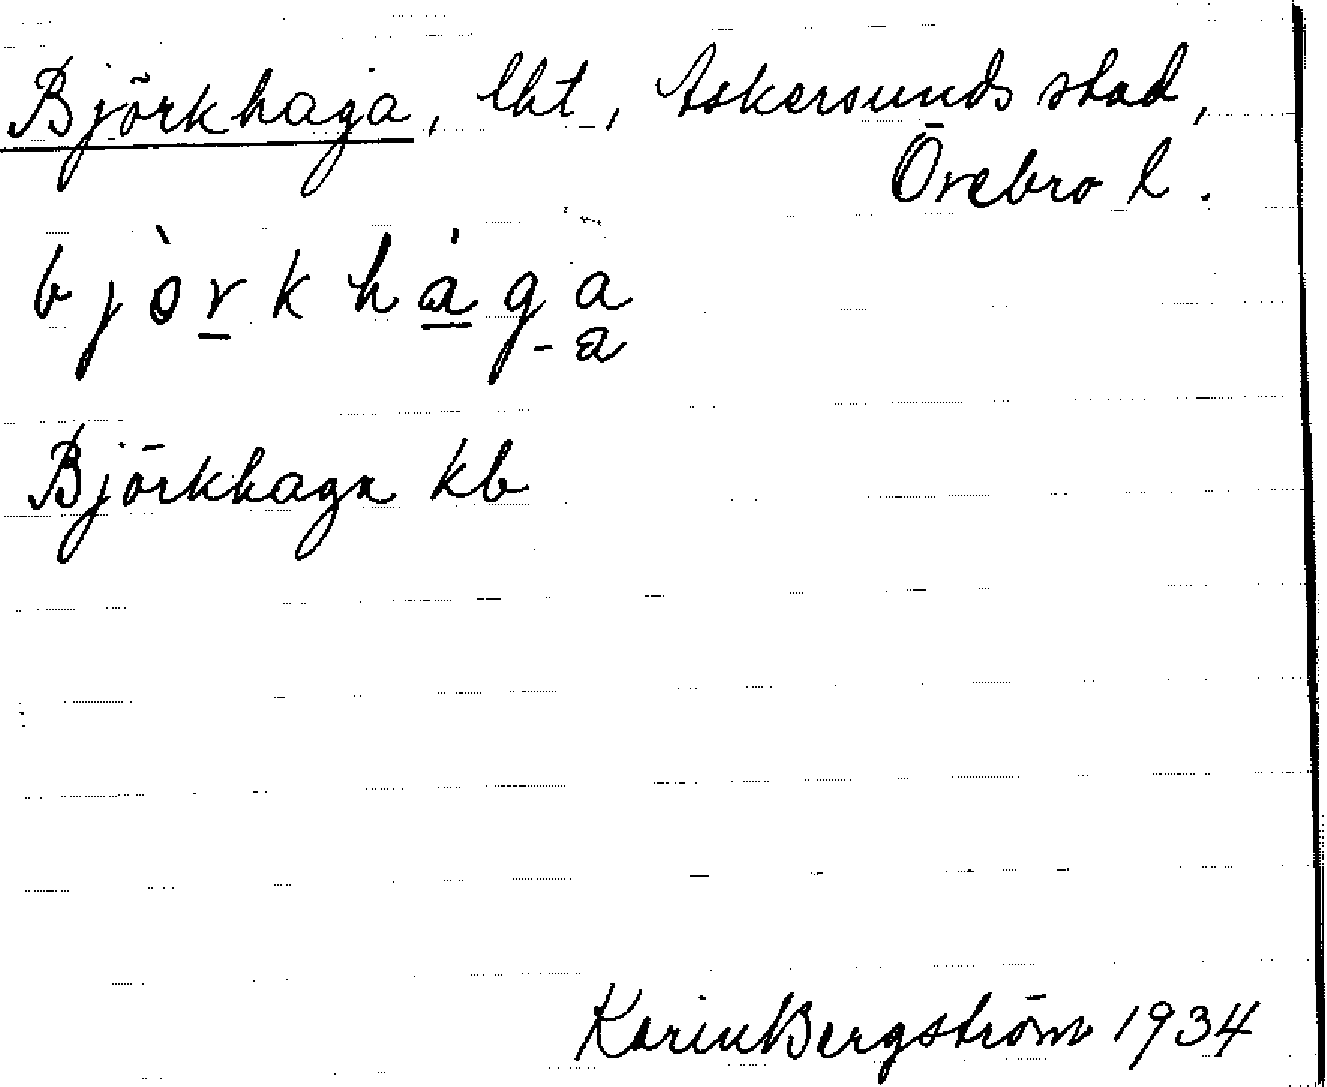 Björkhaga, lht, Askersunds stad,
Örebro l.
bjòrkhága
-a
Björkhagn kb
Karin Bergström 1934